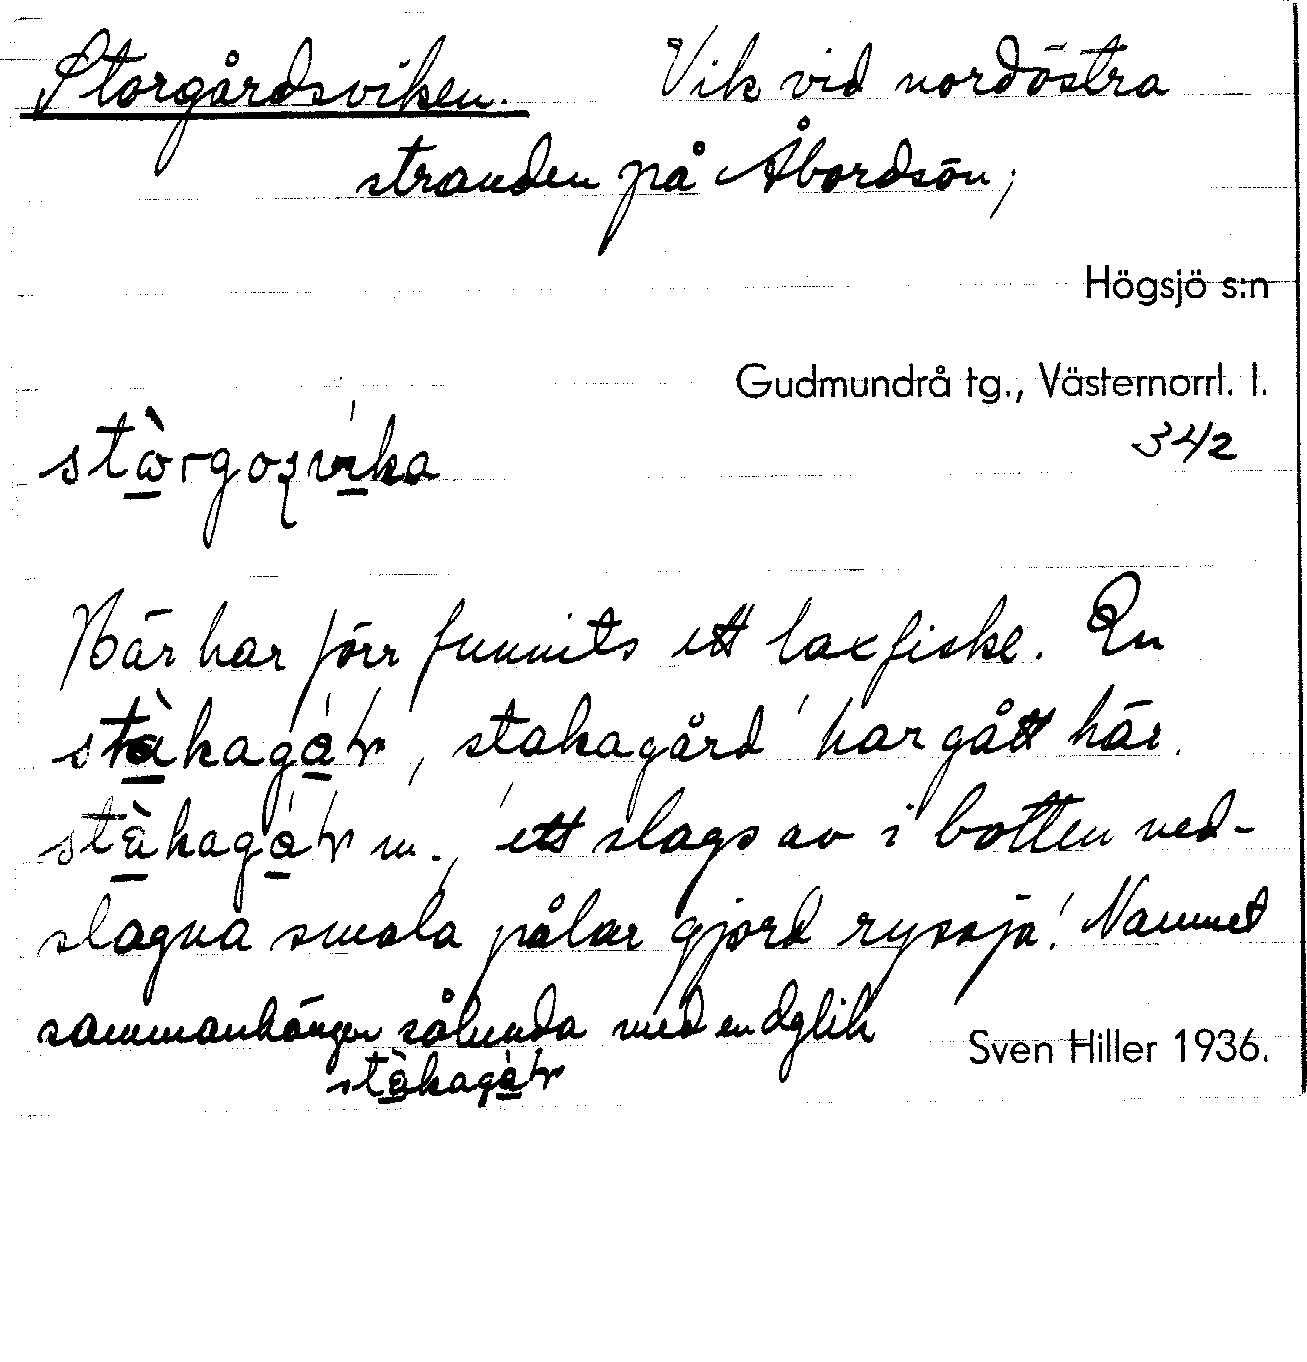 Storgårdsviken. Vik vid nordöstra
stranden på Åbordsön;
Högsjö s:n
Gudmundrå tg., Västernorrl. l.
342
stòrgoʂvíka
Här har förr funnits ett laxfiske. En
'stakagård' har gått här.
m., 'ett slags av i botten ned-
slagna smala pålar gjord ryssja'. Namnet
sammanhänger sålunda med en dylik
Sven Hiller 1936.